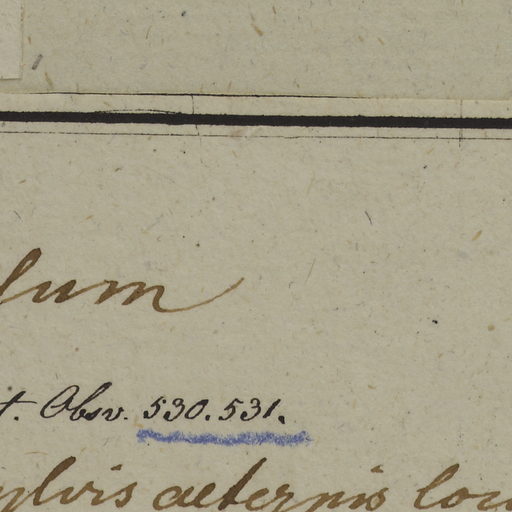 lum
t. Obsv. 530. 531.
sylvis aeternis lou